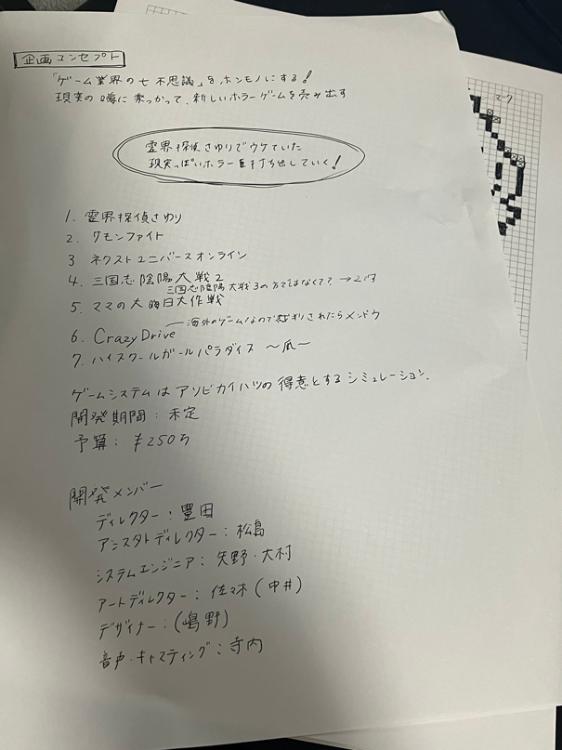 企画コンセプト
「ゲーム業界の七不思議」をホンモノにする!
現実の噂に乗っかって、新しいホラーゲームを売り出す
霊界探偵さゆりでウケていた
現実っぽいホラーを打ち出していく!
1. 霊界探偵さゆり
2. クモンファイト
3 ネクストユニバースオンライン
4. 三国志陰陽大戦2
三国志陰陽大戦3の方ではなくて? →2です
5. ママの大晦日大作戦
6. Crazy Drive
海外のゲームなので裁判されたらメンドウ
7. ハイスクールガールパラダイス 〜爪〜
ゲームシステムはアソビカイハツの得意とするシミュレーション.
開発期間:未定
予算:¥250万
開発メンバー
ディレクター:豊田
アシスタトディレクター:松島
システムエンジニア:矢野・大村
アートディレクター:佐々木(中井)
デザイナー:(嶋野)
音声・キャスティング:寺内